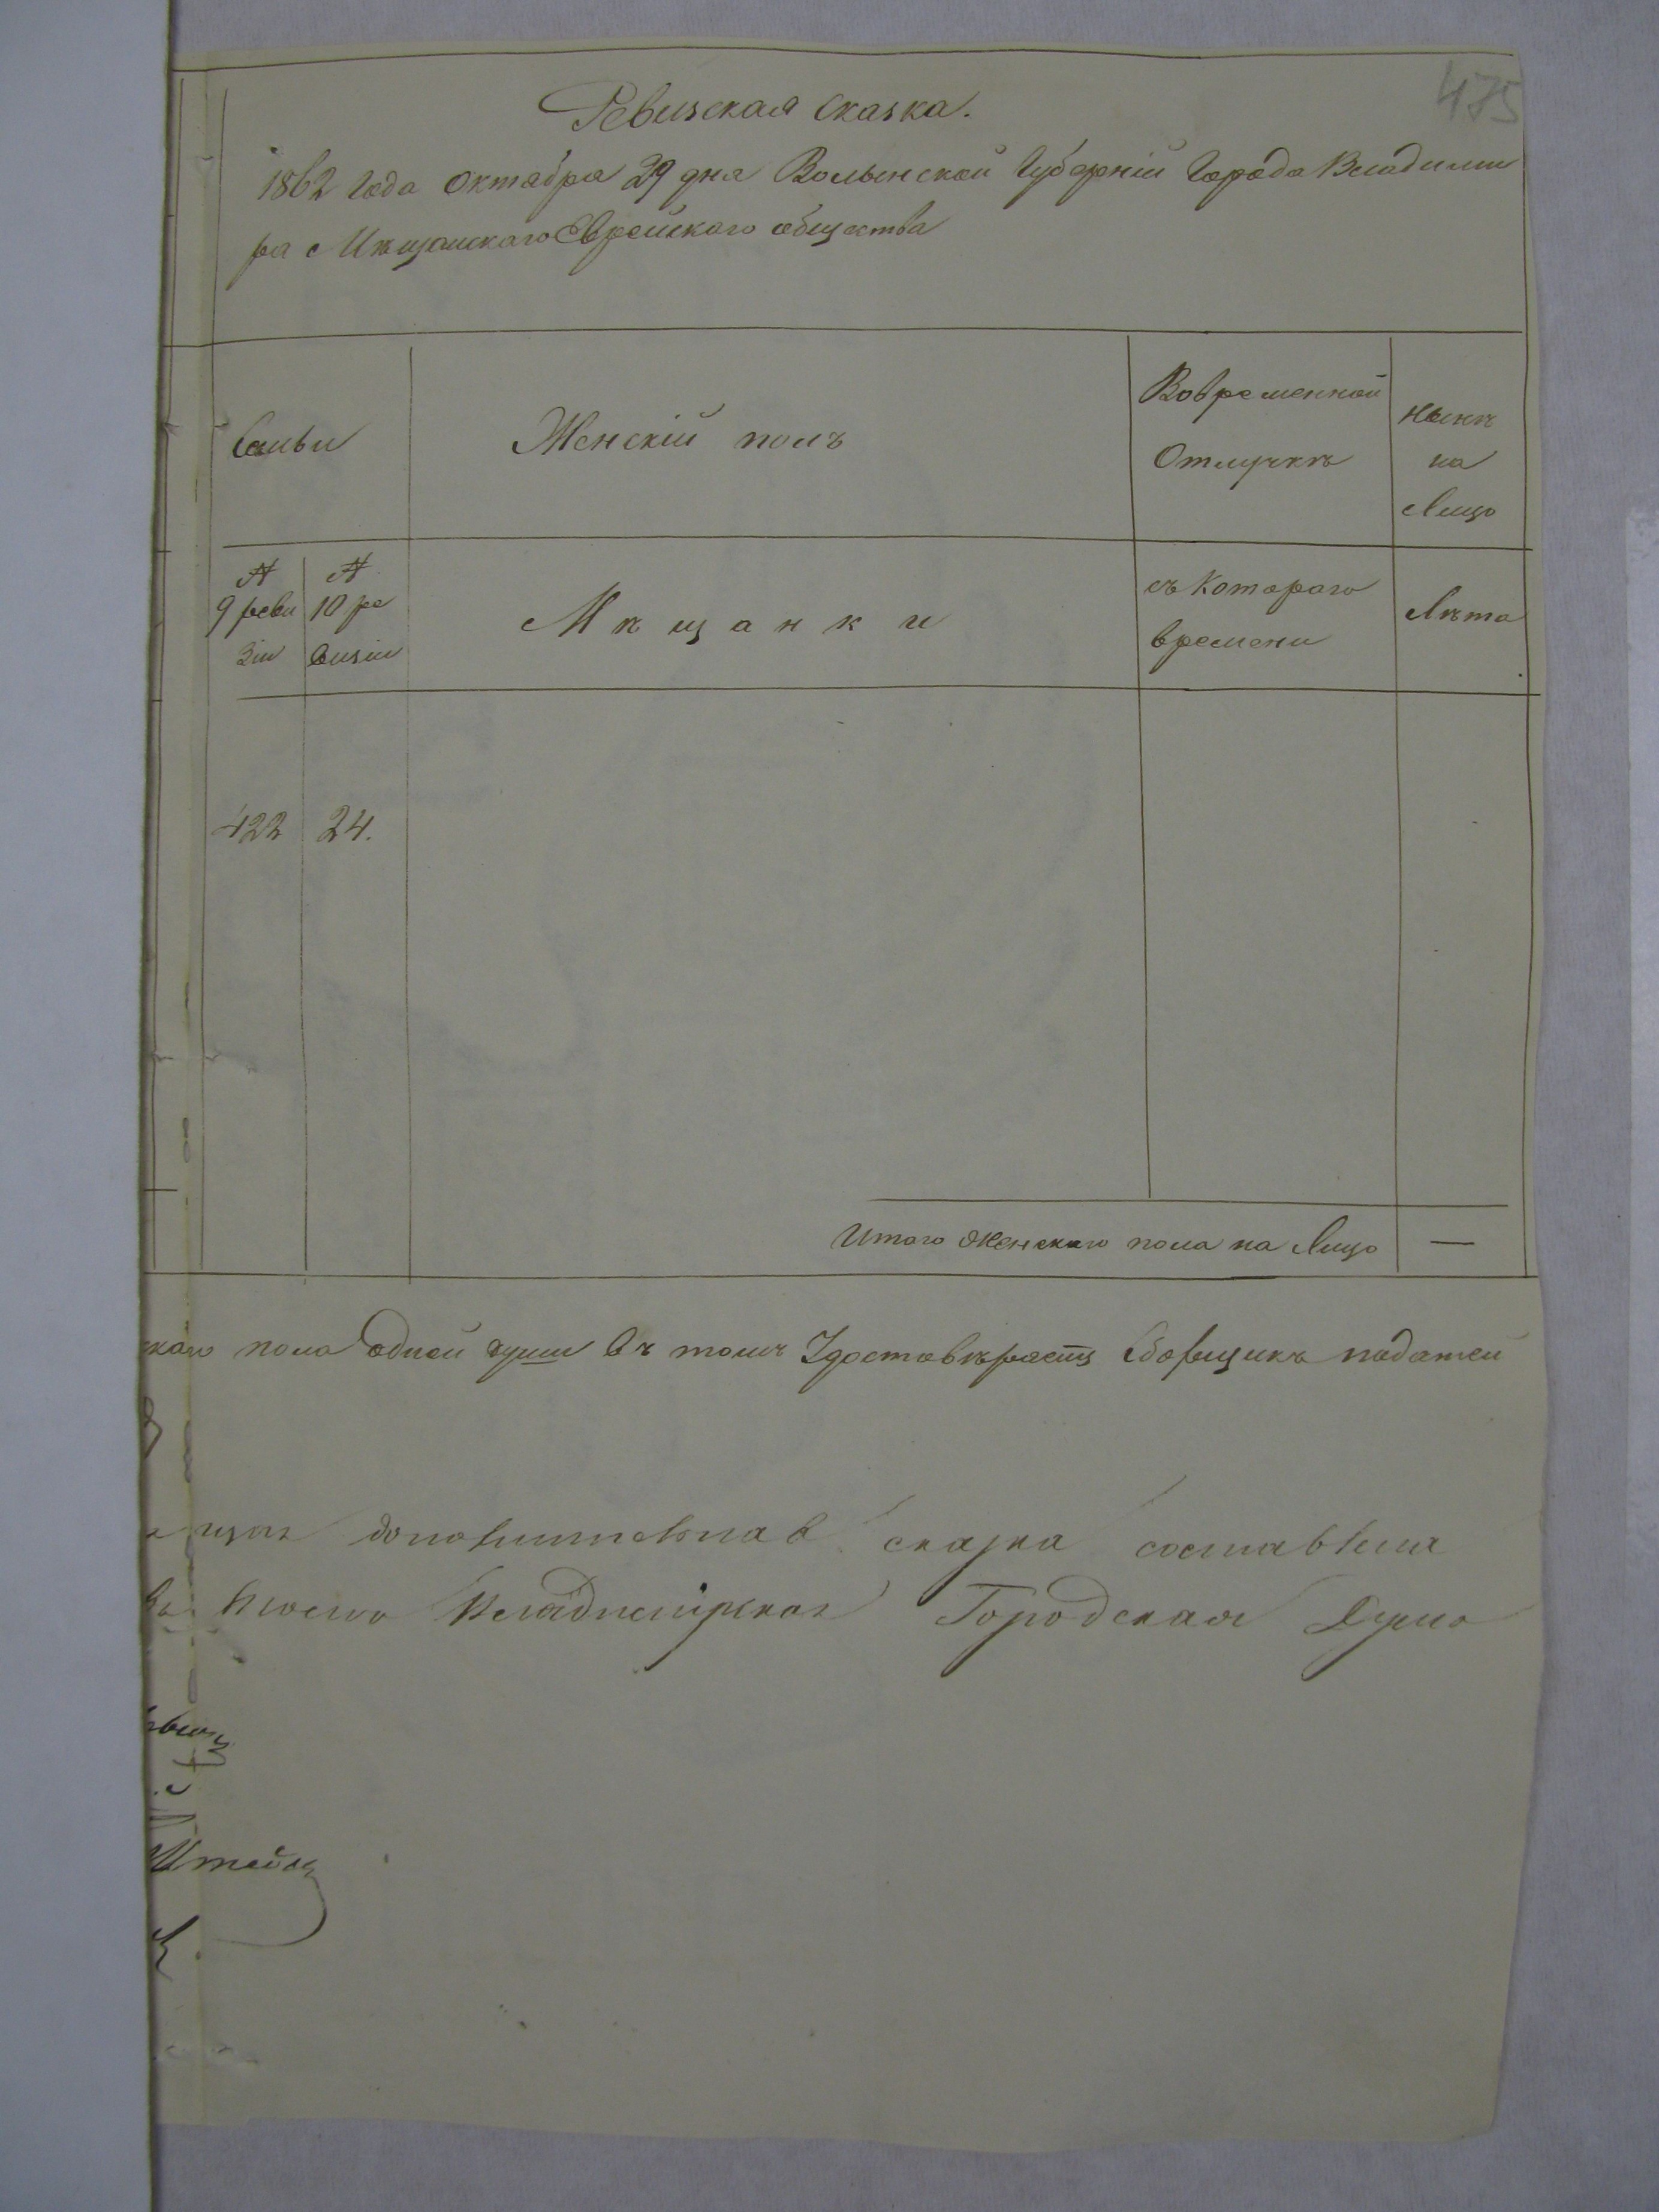 475
Ревизская сказка.
1862 года октября 29 дня Волынской Губерніи Города Владими
ра Мѣщанскаго Еврейскаго общества
Семьи
Женскій полъ
Вовременной
Отлучкѣ
Нынѣ
на
Лицо
№
9 реви
зіи
№
10 ре
визіи
Мѣщанки
съ Котораго
времени
Лѣта
422 24.
Итого Женскаго пола на Лицо —
пола одной души въ томъ Удостовѣряетъ Сборщикъ податей
сказка составлена
Владимирская Городская Дума